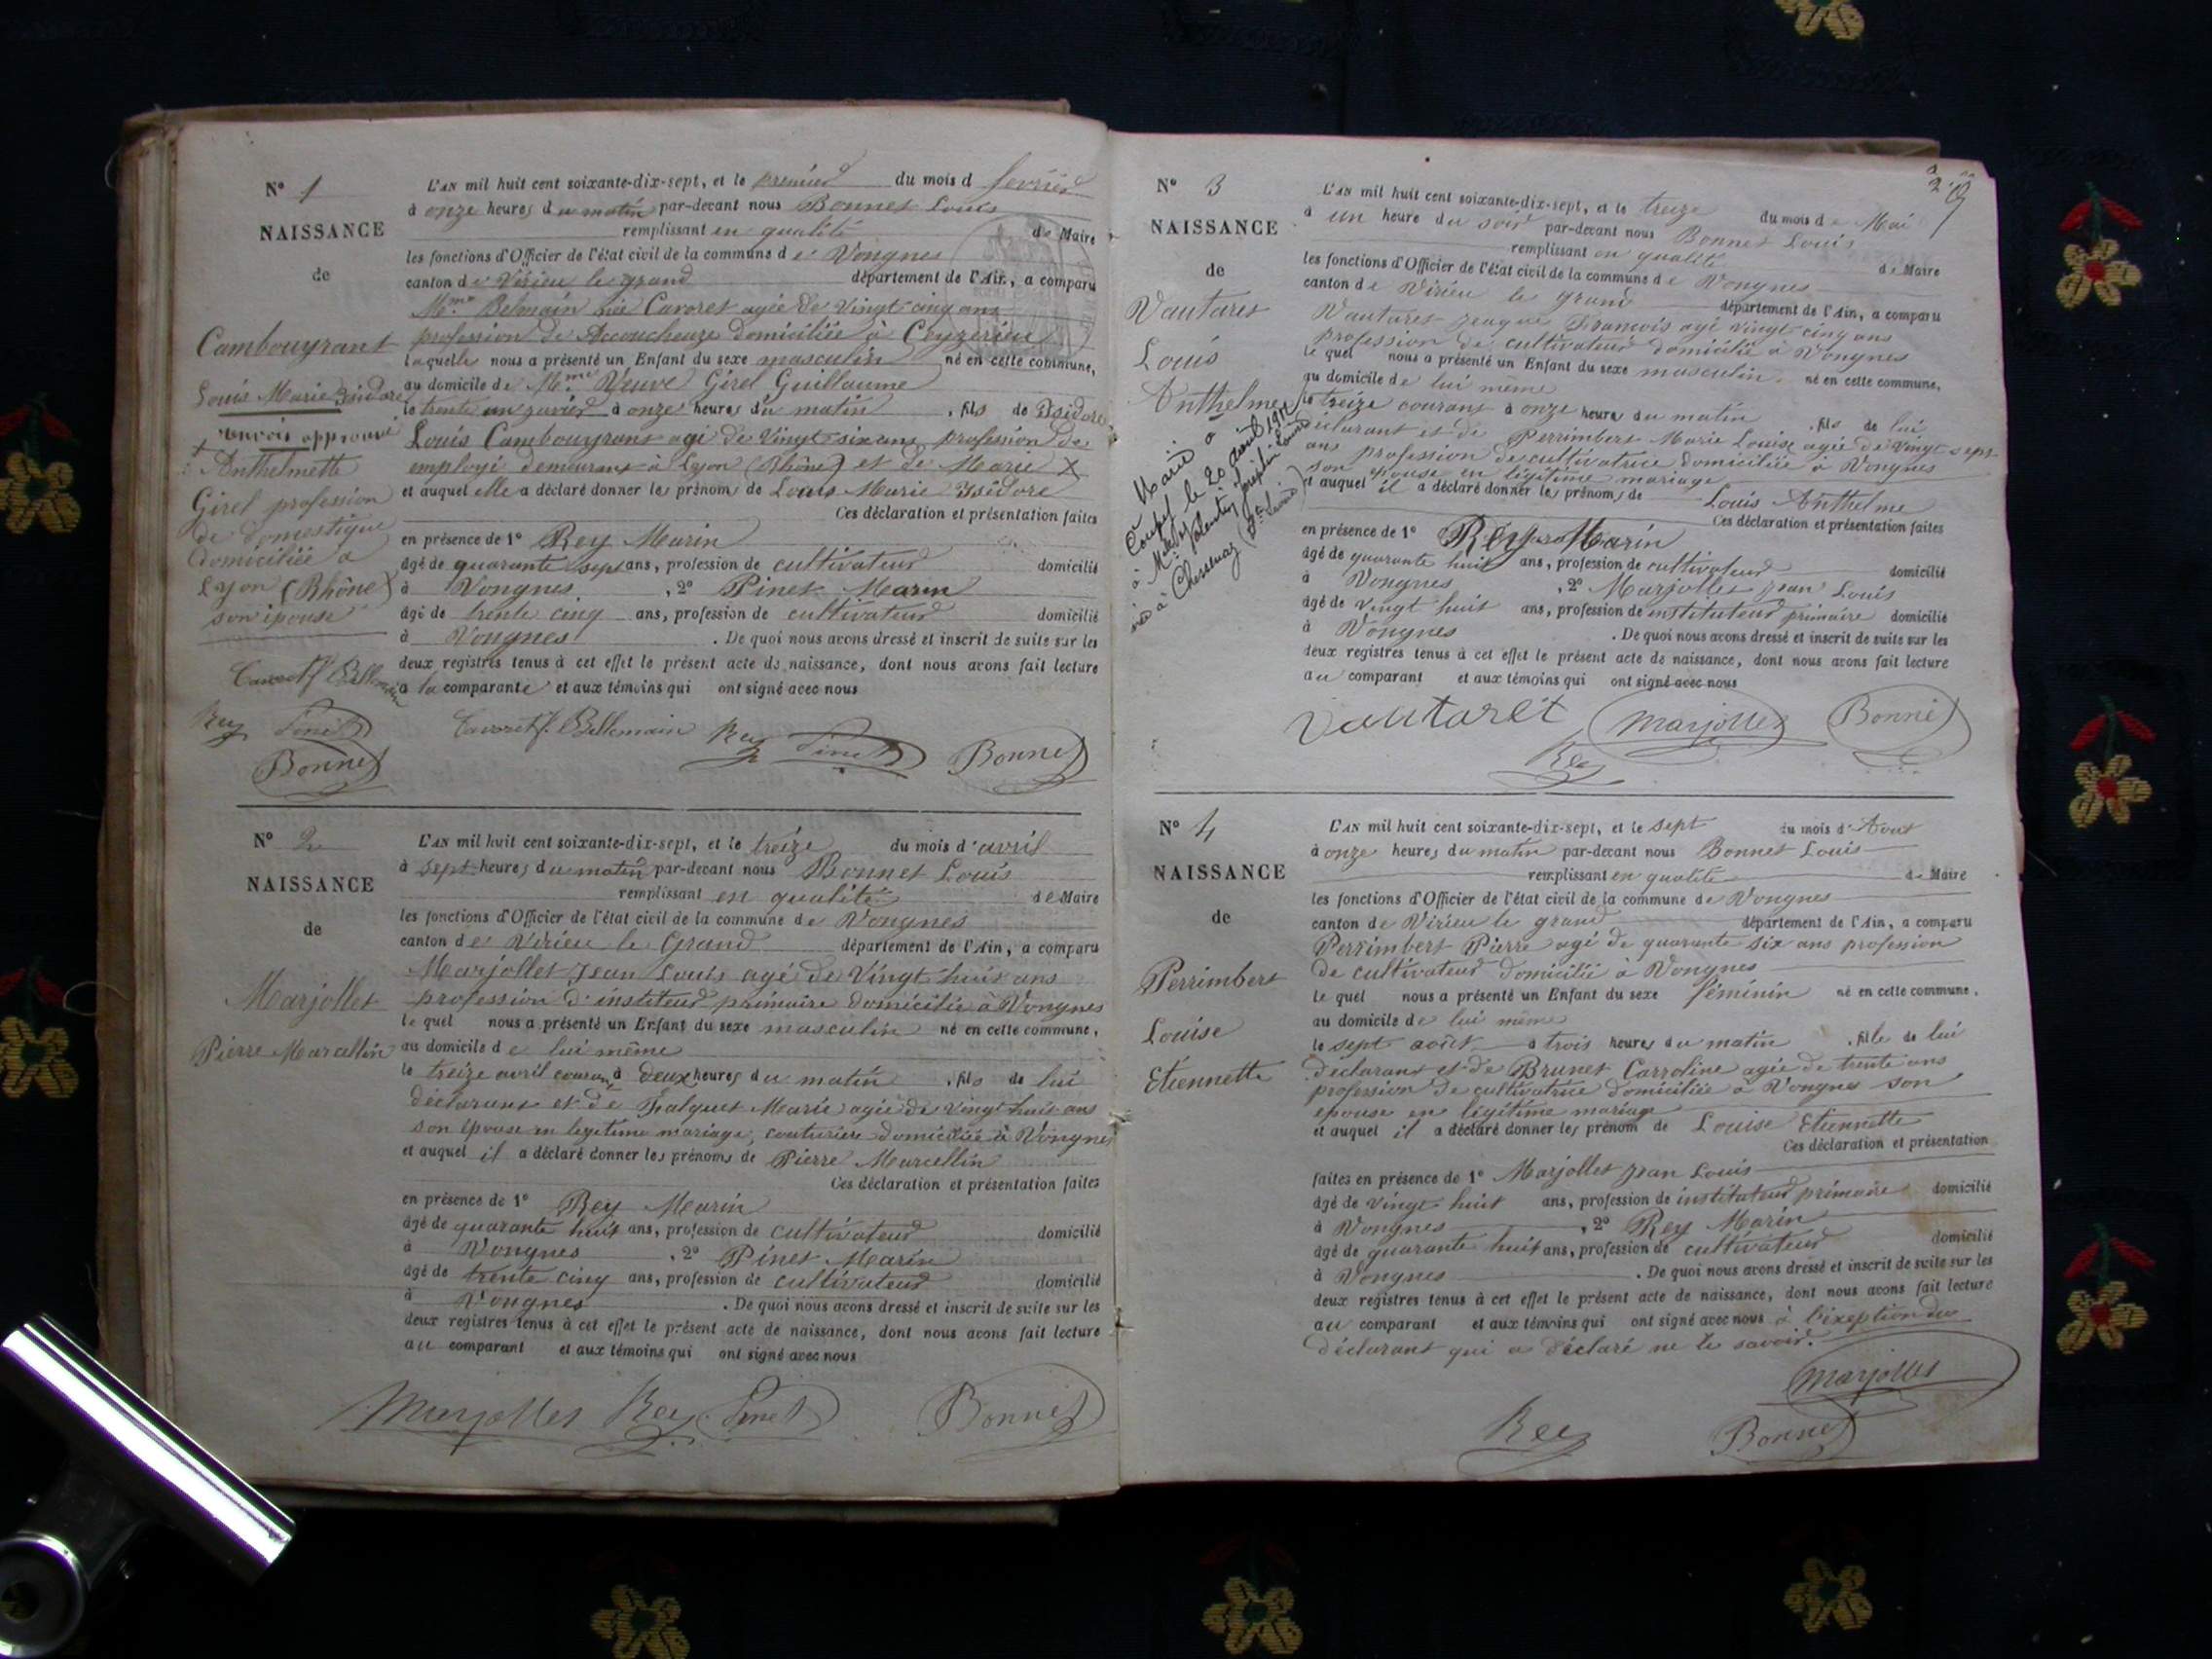 N° 1
NAISSANCE
de
Cambouyrant
Louis Marie Isidore
renvoi approuvé
+ Anthelmette
Girel profession
de domestique
domiciliée à
Lyon (Rhône)
son épouse
L'AN mil huit cent soixante-dix-sept, et le premier du mois d février
à onze heures du matin par-devant nous Bonnet Louis
remplissant en qualité de Maire
les fonctions d'Officier de l'état civil de la commune de Vongnes
canton de Virieu le grand département de l'Ain, a comparu
Mme Belmain née Cavoret agée de Vingt-cinq ans
profession de Accoucheuse domiciliée à Ceyzerieu
laquelle nous a présenté un Enfant du sexe masculin né en cette commune,
au domicile de Mme Veuve Girel Guillaume
le trente un janvier à onze heures du matin, fils de Isidore
Louis Cambouyrant agé de Vingt-six ans profession de
employé demeurant à Lyon (Rhône) et de Marie X
et auquel elle a déclaré donner les prénoms de Louis Marie Isidore
Ces déclaration et présentation faites
en présence de 1° Rey Marin
âgé de quarante sept ans, profession de cultivateur domicilié
à Vongnes, 2° Pinet Marin
âgé de trente cinq ans, profession de cultivateur domicilié
à Vongnes. De quoi nous avons dressé et inscrit de suite sur les
deux registres tenus à cet effet le présent acte de naissance, dont nous avons fait lecture
a la comparante et aux témoins qui ont signé avec nous
Cavoret f. Bellemain
Rey Pinet
Bonnet
Cavoret f. Bellemain Rey Pinet Bonnet
N° 2
NAISSANCE
de
Marjollet
Pierre Marcellin
L'AN mil huit cent soixante-dix-sept, et le treize du mois d'avril
à sept heures du matin par-devant nous Bonnet Louis
remplissant en qualité de Maire
les fonctions d'Officier de l'état civil de la commune de Vongnes
canton de Virieu le Grand département de l'Ain, a comparu
Marjollet Jean Louis agé de Vingt huit ans
profession d'instituteur primaire domiciliée à Vongnes
le quel nous a présenté un Enfant du sexe masculin né en cette commune,
au domicile de lui même
le treize avril courant à deux heures du matin, fils de lui
déclarant et de Falquet Marie agée de vingt huit ans
son épouse en legetime mariage, couturiere domiciliée à Vongnes
et auquel il a déclaré donner les prénoms de Pierre Marcellin
Ces déclaration et présentation faites
en présence de 1° Rey Marin
âgé de quarante huit ans, profession de cultivateur domicilié
à Vongnes, 2° Pinet Marin
âgé de trente cinq ans, profession de cultivateur domicilié
à Vongnes. De quoi nous avons dressé et inscrit de suite sur les
deux registres tenus à cet effet le présent acte de naissance, dont nous avons fait lecture
au comparant et aux témoins qui ont signé avec nous
Marjollet Rey Pinet Bonnet
N° 3
NAISSANCE
de
Vautaret
Louis
Anthelme
Marié à
Coupy le 20 août 1912
à Mlle
née à Chesenaz
L'AN mil huit cent soixante-dix-sept, et le treize du mois de Mai
à un heure du soir par-devant nous Bonnet Louis
remplissant en qualité de Maire
les fonctions d'Officier de l'état civil de la commune de Vongnes
canton de Virieu le grand département de l'Ain, a comparu
Vautaret Jeaque Francois agé vingt cinq ans
profession de cultivateur domiciliée à Vongnes
le quel nous a présenté un Enfant du sexe masculin, né en cette commune,
au domicile de lui même
le treize courant à onze heures du matin, fils de lui
déclarant et de Perrimbert Marie Louise agée de vingt sept
ans profession de cultivatrice domiciliée à Vongnes
son epouse en légitime mariage
et auquel il a déclaré donner les prénoms de Louis Anthelme
Ces déclaration et présentation faites
en présence de 1° Rey Marin
âgé de quarante huit ans, profession de cultivateur domicilié
à Vongnes, 2° Marjollet Jean Louis
âgé de vingt huit ans, profession de instituteur primaire domicilié
à Vongnes. De quoi nous avons dressé et inscrit de suite sur les
deux registres tenus à cet effet le présent acte de naissance, dont nous avons fait lecture
au comparant et aux témoins qui ont signé avec nous
Vautaret Marjollet Bonnet
Rey
N° 4
NAISSANCE
de
Perrimbert
Louise
Etiennette
L'AN mil huit cent soixante-dix-sept, et le sept du mois d'Aout
à onze heures du matin par-devant nous Bonnet Louis
remplissant en qualité de Maire
les fonctions d'Officier de l'état civil de la commune de Vongnes
canton de Virieu le grand département de l'Ain, a comparu
Perrimbert Pierre agé de quarante six ans profession
de cultivateur domiciliée à Vongnes
le quel nous a présenté un Enfant du sexe féminin né en cette commune,
au domicile de lui même
le sept août à trois heures du matin, fille de lui
déclarant et de Brunet Carroline agée de trente ans
profession de cultivatrice domiciliée à Vongnes son
epouse en légitime mariage
et auquel il a déclaré donner les prénom de Louise Etiennette
Ces déclaration et présentation
faites en présence de 1° Marjollet Jean Louis
âgé de vingt huit ans, profession de instituteur primaire domicilié
à Vongnes, 2° Rey Marin
âgé de quarante huit ans, profession de cultivateur domicilié
à Vongnes. De quoi nous avons dressé et inscrit de suite sur les
deux registres tenus à cet effet le présent acte de naissance, dont nous avons fait lecture
au comparant et aux témoins qui ont signé avec nous à l'exeption du
déclarant qui a déclaré ne le savoir.
Marjollet
Rey Bonnet